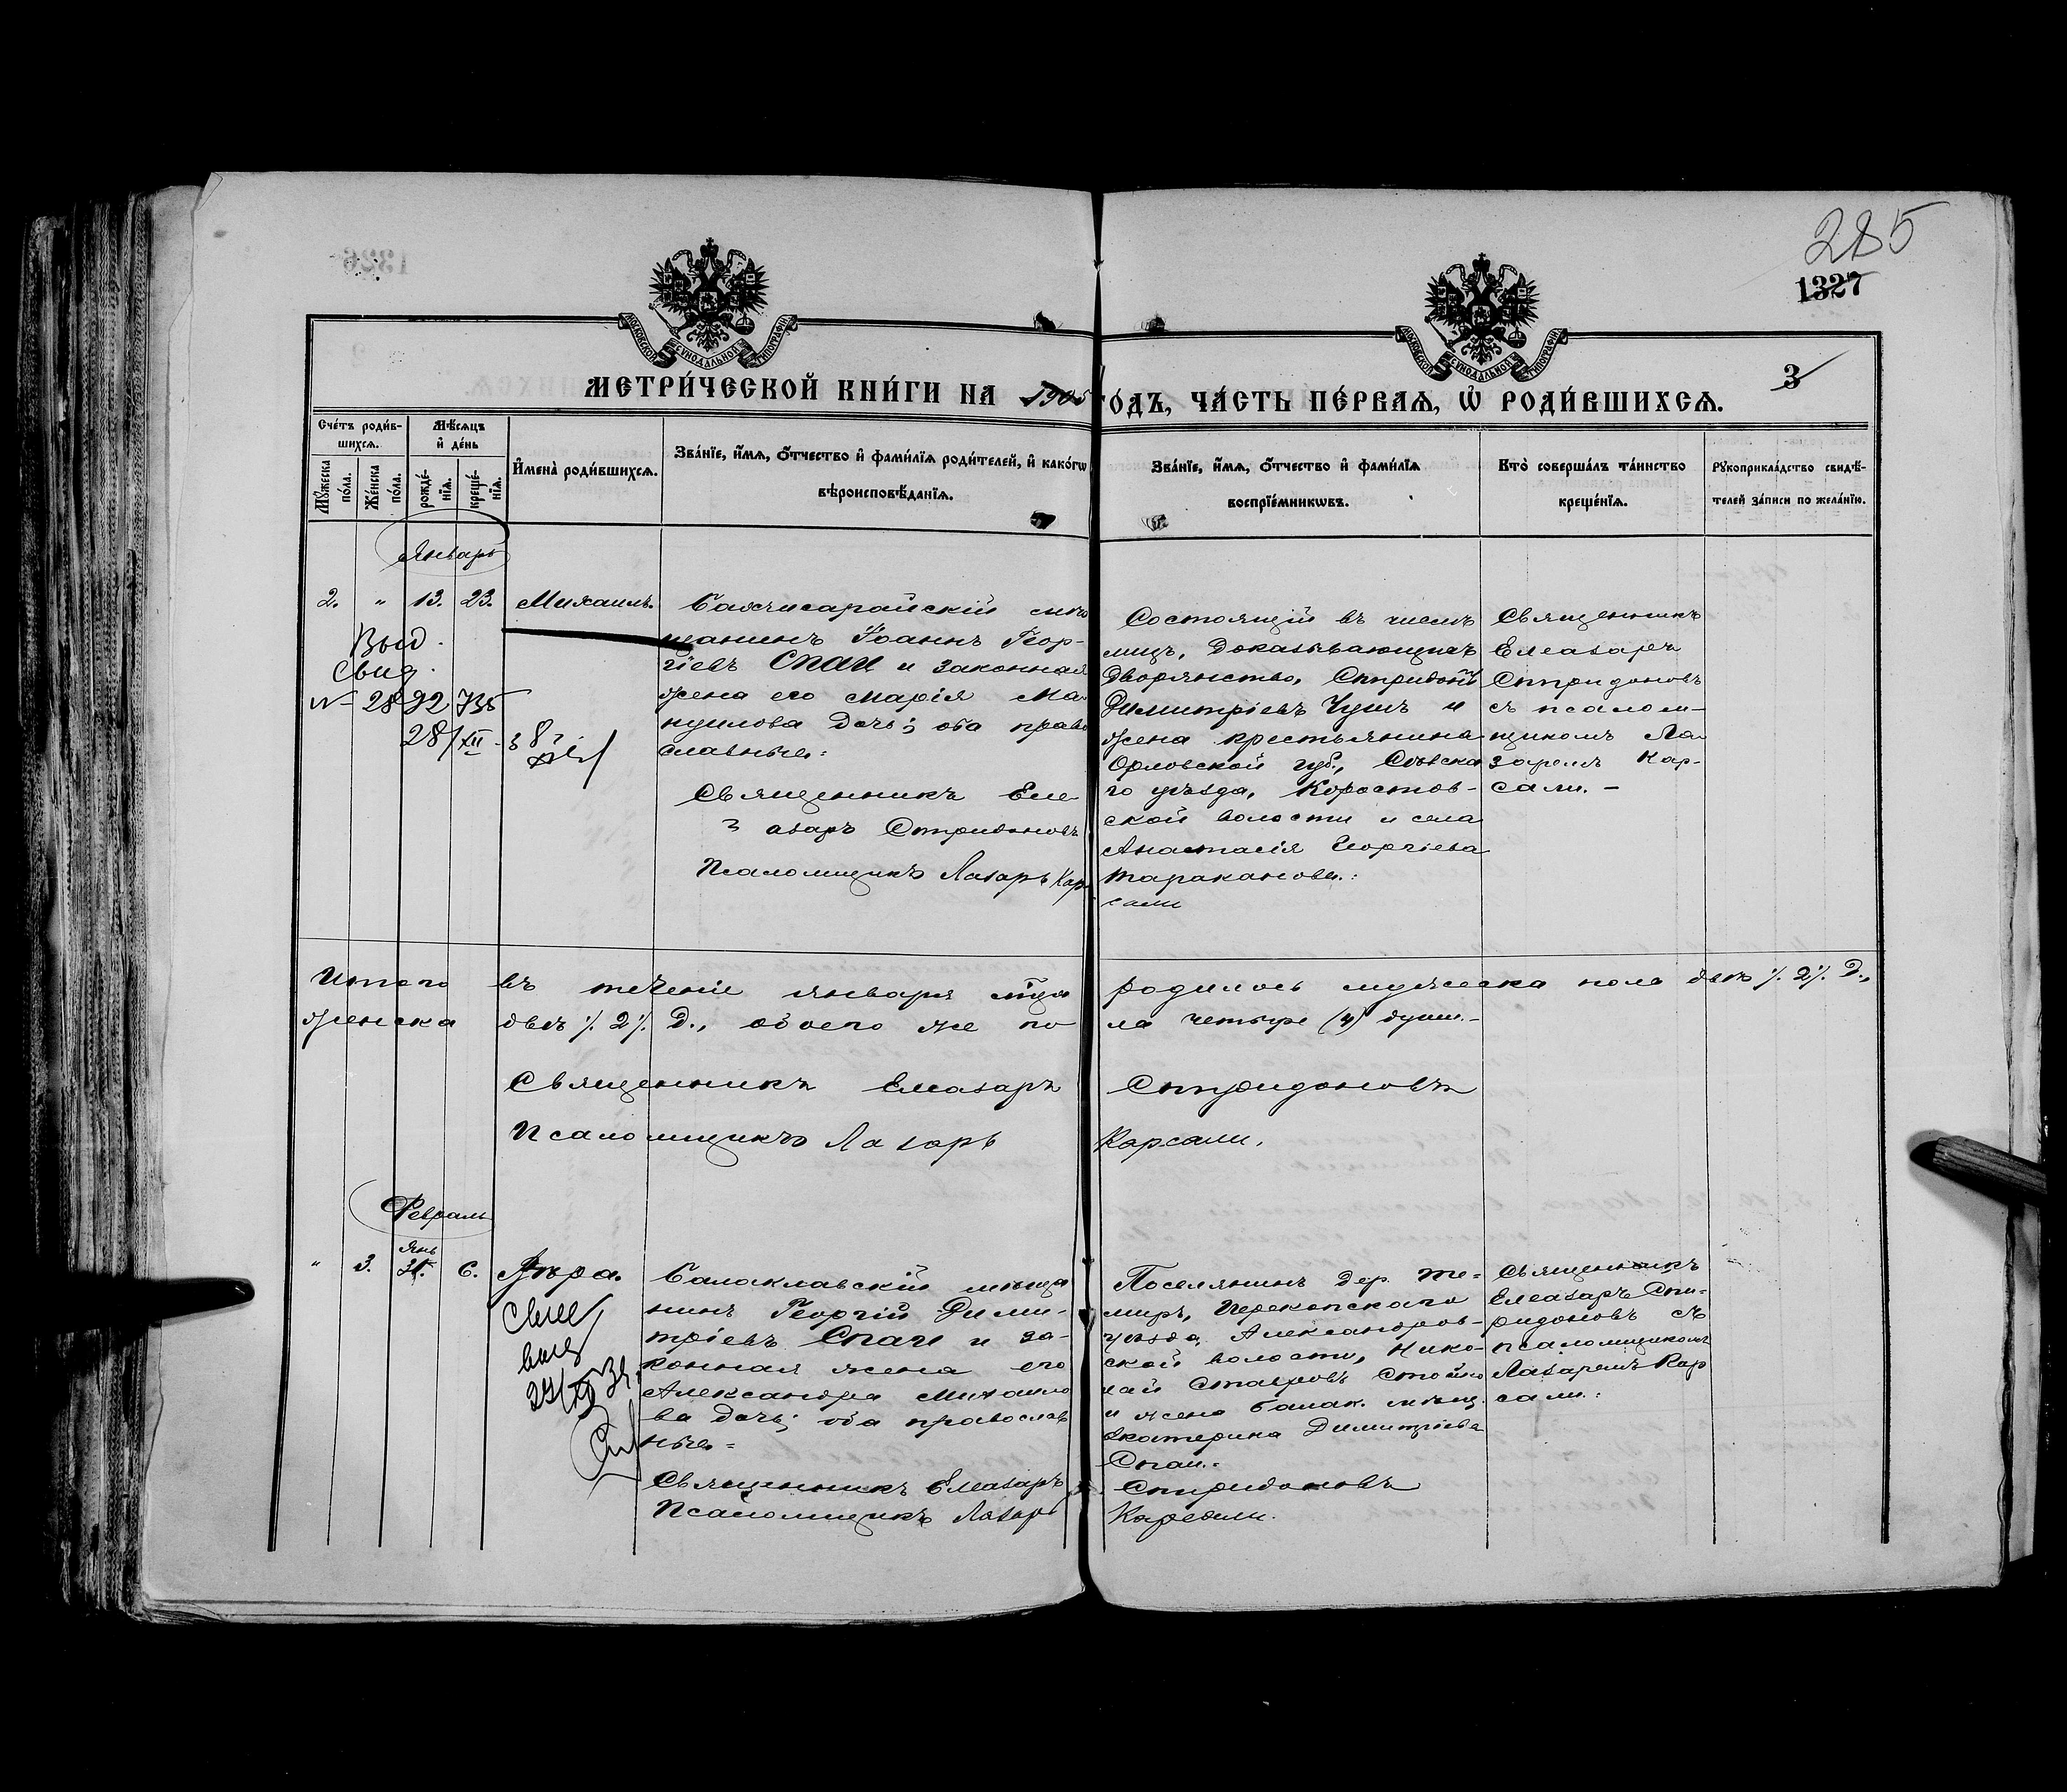 285
1327
1326
МОСКОВСКОЙ СѴНОДАЛЬНОЙ ТИПОГРАФІИ
МОСКОВСКОЙ СѴНОДАЛЬНОЙ ТИПОГРАФІИ
3
МЕТРИ́ЧЕСКОЙ КНИ́ГИ НА 1905 ГО́ДЪ, ЧА́СТЬ ПЕ́РВАѦ, Ѡ҆ РОДИ́ВШИХСѦ.
Сче́тъ роди́в-
шихсѧ.
Мꙋ́жеска по́ла.
Же́нска по́ла.
Мѣ́сѧцъ
и҆ де́нь
рожде́-нїѧ.
креще́-нїѧ.
И҆мена̀ роди́вшихсѧ.
Зва́нїе, и҆́мѧ, ѻ҆́тчество и҆ фами́лїѧ роди́телей, и҆ како́гѡ
вѣроисповѣ́данїѧ.
Зва́нїе, и҆́мѧ, ѻ҆́тчество и҆ фами́лїѧ
воспрїе́мникѡвъ.
Кто̀ соверша́лъ та́инство
креще́нїѧ.
Рꙋкоприкла́дство свидѣ́-
телей за́писи по жела́нїю.
Январь
2. " 13. 23. Михаилъ.
Выд.
Свид.
№ 2892735
28/XII
Бахчисарайскій мѣ
щанинъ Іоаннъ Геор-
гіевъ Спаи и законная
жена его Марія Ма-
нуилова дочь; оба право
славные:
Священникъ Еле
азаръ Спиридоновъ
Псаломщикъ Лазарь Кар
сали
Состоящій въ числѣ
лицъ, доказывающихъ
дворянство, Спиридонъ
Димитріевъ Чушъ и
жена крестьянина
Орловской губ., Сѣвска
го уѣзда, Коростов-
ской волости и села
Анастасія Георгіева
Тараканова.:
Священникъ
Елеазаръ
Спиридоновъ
съ псалом-
щикомъ Ла-
заремъ Кар-
сали.-
Итого въ теченіе января м-ца родилось мужеска пола двѣ /. 2 /. д.,
женска двѣ /. 2 /. д., обоего же по ла четыре (4) души.-
Священникъ Елеазаръ Спиридоновъ
Псаломщикъ Лазарь Карсали.
Февраль
Янв
" 3. 31. 6. Вѣра.
Балаклавскій мѣща
нинъ Георгій Дими-
тріевъ Спаи и за-
конная жена его
Александра Михаило
ва дочь; оба православ
ные=
Священникъ Елеазаръ Спиридоновъ
Псаломщикъ Лазарь Карсали.
Поселянинъ дер. Те-
миръ, Перекопскаго
уѣзда, Александров-
ской волости, Нико-
лай Ставровъ Стойко
и жена балак. мѣщ.
Екатерина Димитріева
Спаи.-
Священникъ
Елеазаръ Спи-
ридоновъ съ
псаломщикомъ
Лазаремъ Кар
сали.: